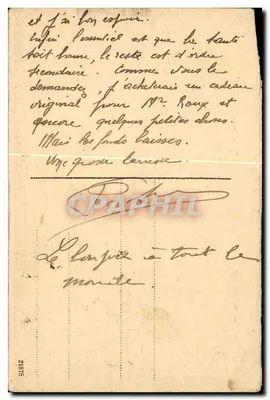 et j'ai bon espoir.
Enfin l'essentiel est que la santé
soit bonne, le reste est d'ordre
secondaire. Comme vous le
demandez, j'achèterais un cadeau
original pour Mr Roux et
encore quelques petites choses.
Mais les fonds baissent.
Une grosse caresse.
CPAPHIL
Le bonjour à tout le
monde.
21875